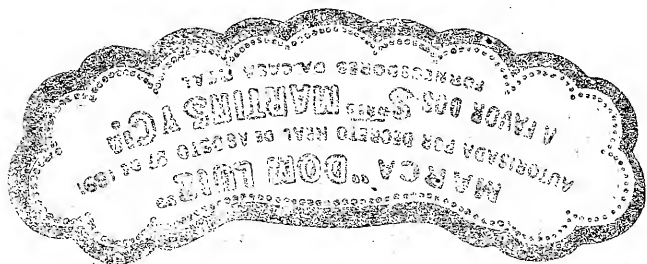 MARCA "DON LUIZ"
AUTORISADA POR DECRETO REAL DE AGOSTO 27 DE
A FAVOR DOS Snres MARTINS Y Cia
FORNECEDORES DA CASA REAL